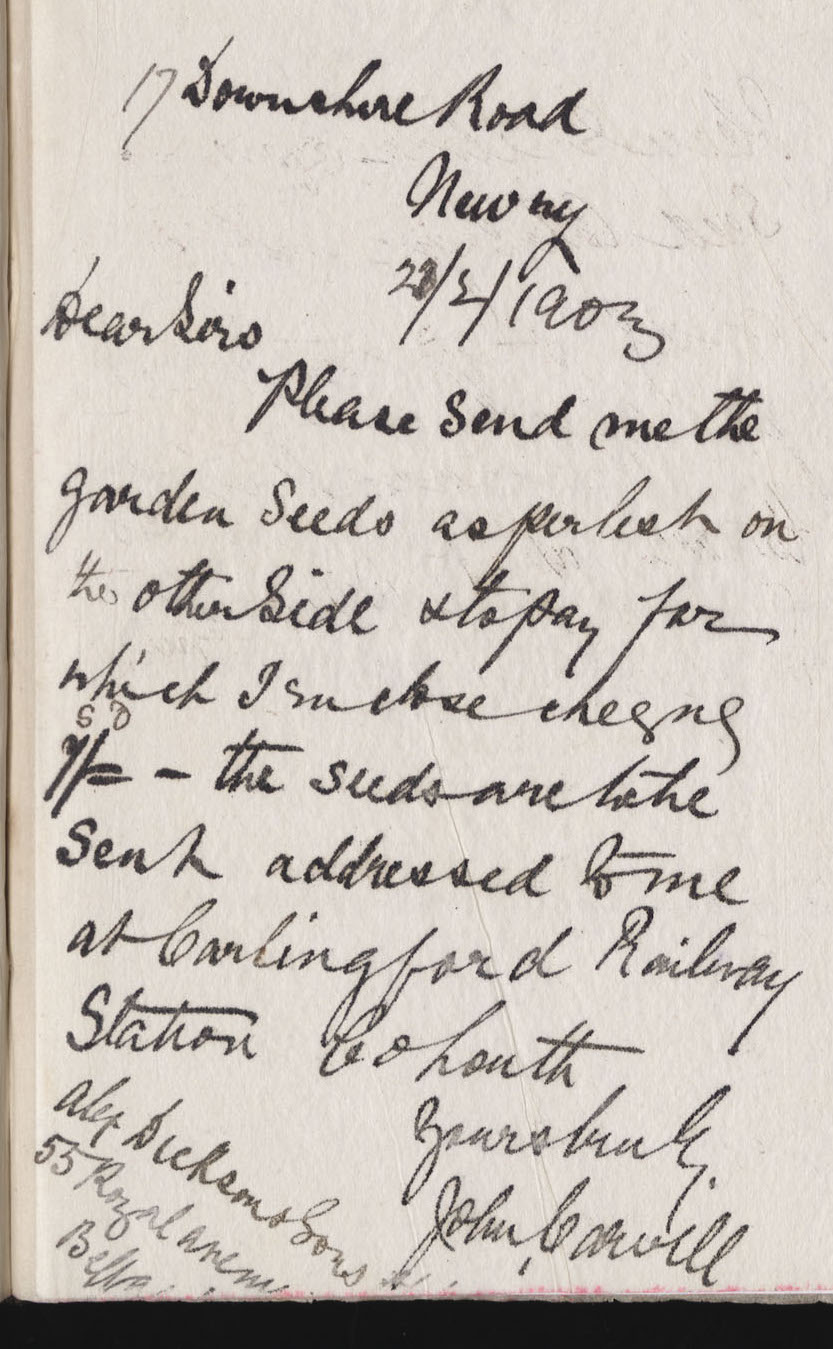 17 Downshire Road
Newry
23/2/1903
Dear Sirs
Please Send me the
garden Seeds as per list on
the other Side & to pay for
which I enclose cheque
S D
7/= – the seeds are to be
Sent addressed to me
at Carlingford Railway
Station Co Louth
Yours truly,
John Carvill
Alex Dickson & Sons
55 Royal Avenue
Belfast